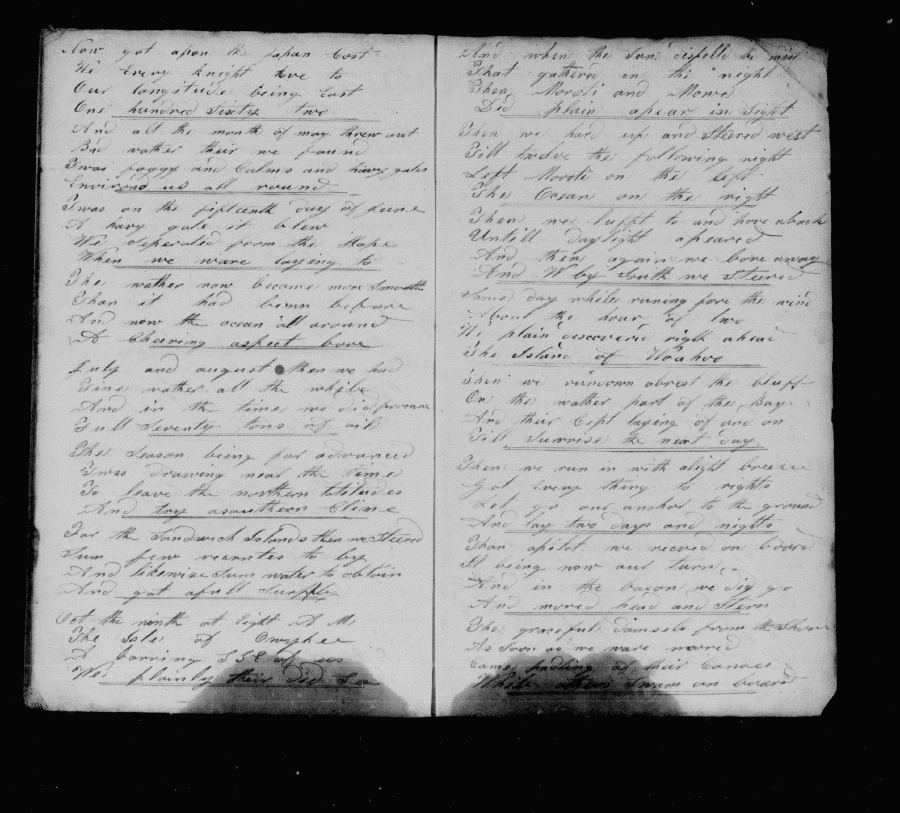 Now got apon the japan Cost
We Every knight hove to
Our longitude being East
One hundred Sixtey two
And all the month of may threw out
Bad wather their we found
Twas foggy and Calms and havy gales
Environd us all round
Twas on the fifteenth day of June
A havy gale it blew
We Seperated from the Hope
When we ware laying to
The wather now became more Smooth
Than it had benn before
And now the ocean all around
A Chearing aspect bore
July and august then we had
Fine wather all the while
And in the time we did
Full Seventy tons of oil
The Season being far advanced
Twas drawing near the time
To leave the northern latitudes
And try asouthern Clime
For the Sandwich Islands then we Steered
Sum few recruites to buy
And likewise Sum water to obtain
And got afull Supply
Oct the ninth at Eight A M
The Isle of Owyhee
A barring S S E of us
We plainly their did See
And when the Sun dispelld the mist
That gatherd in the night
Then Moroti and Mowe
Did plain apear in Sight
Then we hard up and Steered west
Till twelve the following night
Left Moroti on the left
The Ocean on the right
Then we lufft to and hove aback
Untill daylight apeared
And then again we bore away
And W by South we Steered
Same day while runing fore the wind
About the hour of two
We plain discovered right ahead
The Island of Woahoo
Then we rundown abrest the bluff
On the wather part of the Bay
And their Cept laying of and on
Till Sunrise the next day
Then we run in with alight breese
Got Every thing to rights
Let go our anchor to the ground
And lay two days and nights
Than apilot we receved on board
It being now our turn
And in the bason we did go
And mored head and Stern
The graceful damsels from the Shore
As Soon as we ware moored
Came padling of their Canoes
While others Swam on board